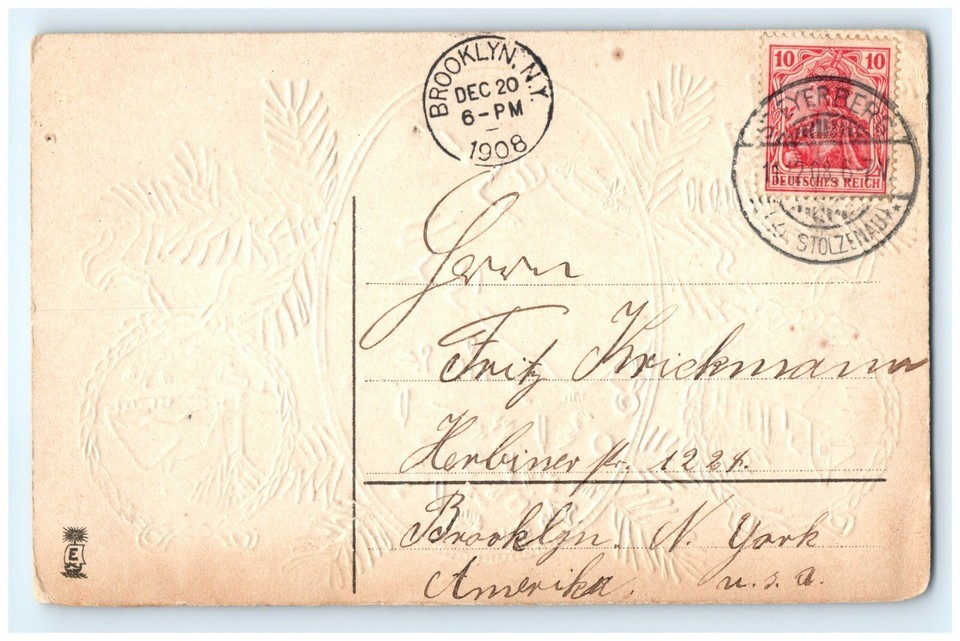 BROOKLYN, N.Y.
DEC 20
6-PM
1908
10 10
DEUTSCHES REICH
STOLZENAU
Herrn
Fritz Krickmann
Herbiner str. 1224.
Brooklyn. N. York
Amerika. U.S.A.
E